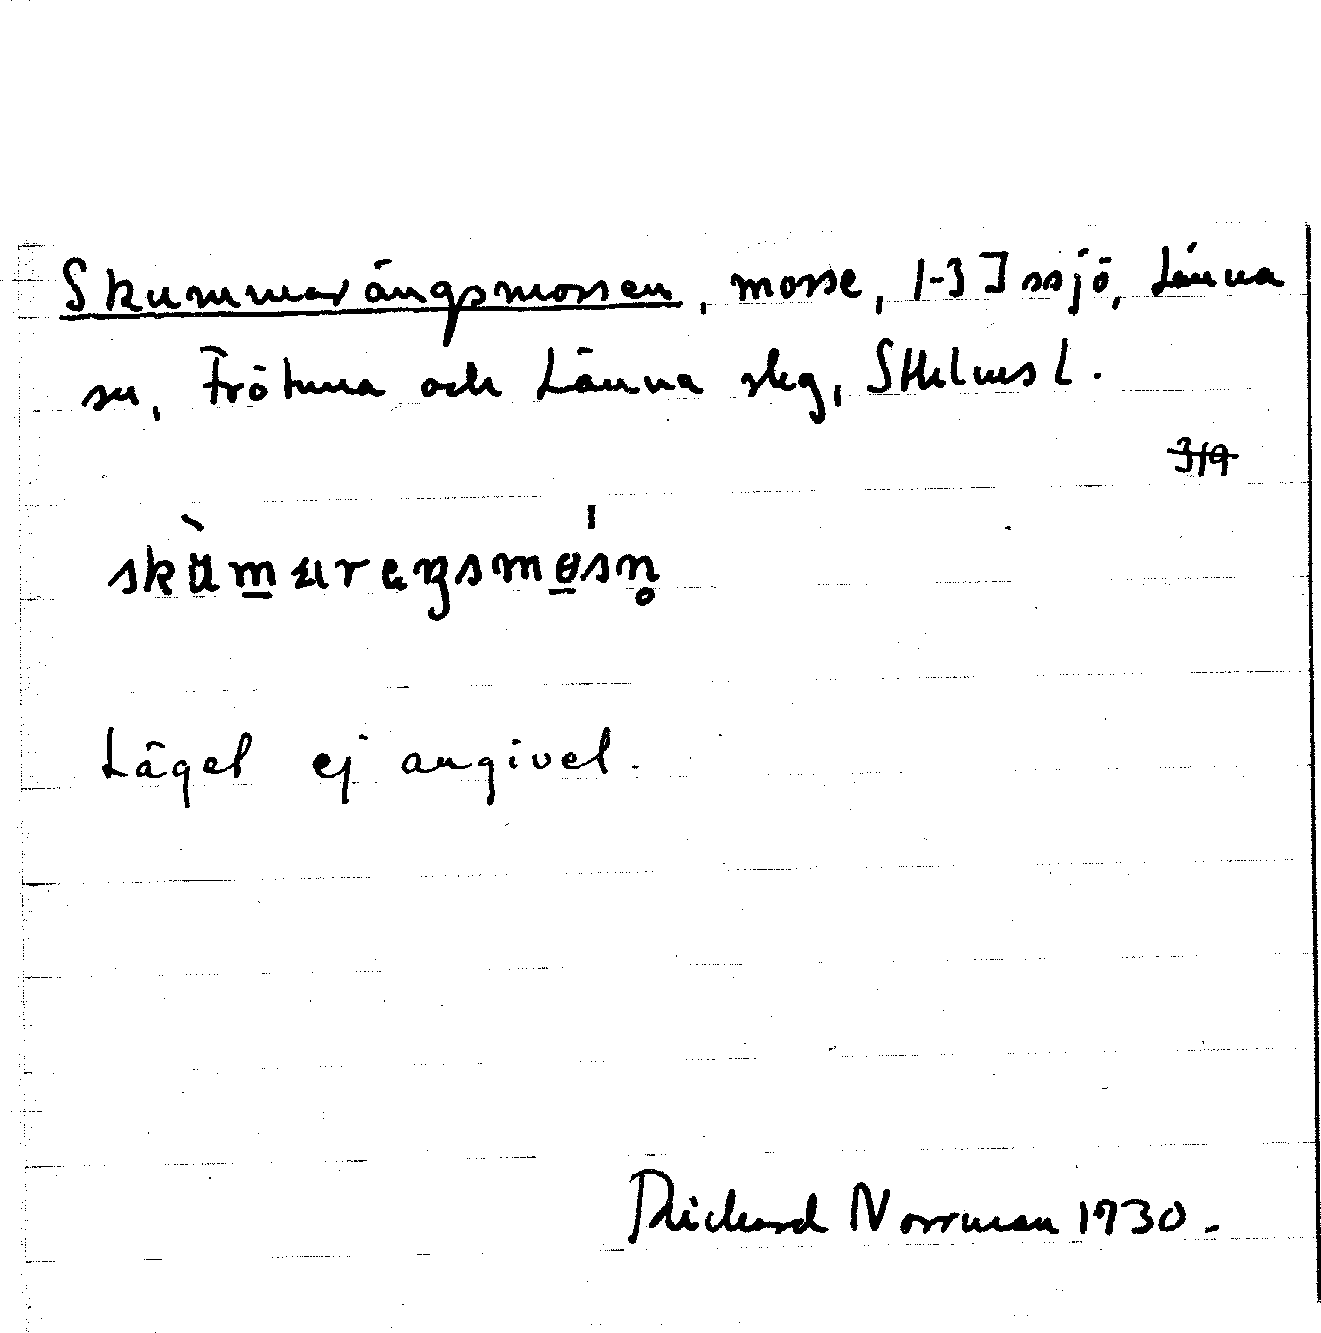 Skummarängsmossen, mosse, 1-3 Issjö, Länna
sn, Frötuna och Länna skg, Sthlms L.
3/9
skùmarεŋsmo̱sn̥
Läget ej angivet.
Rickard Norrman 1930.